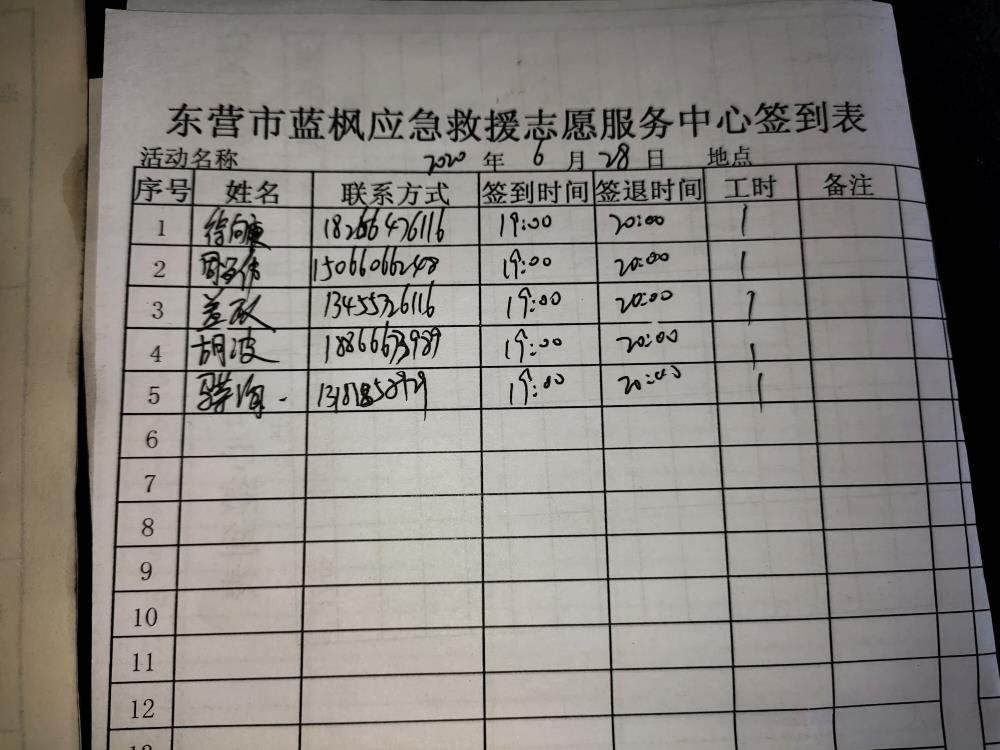 东营市蓝枫应急救援志愿服务中心签到表
活动名称 2020 年 6 月 28 日 地点
序号 姓名 联系方式 签到时间 签退时间 工时 备注
1 18266476116 19:00 20:00 1
2 15066066248 19:00 20:00 1
3 13455326116 19:00 20:00 1
4 胡波 18866673989 19:00 20:00 1
5 19:00 1
6
7
8
9
10
11
12